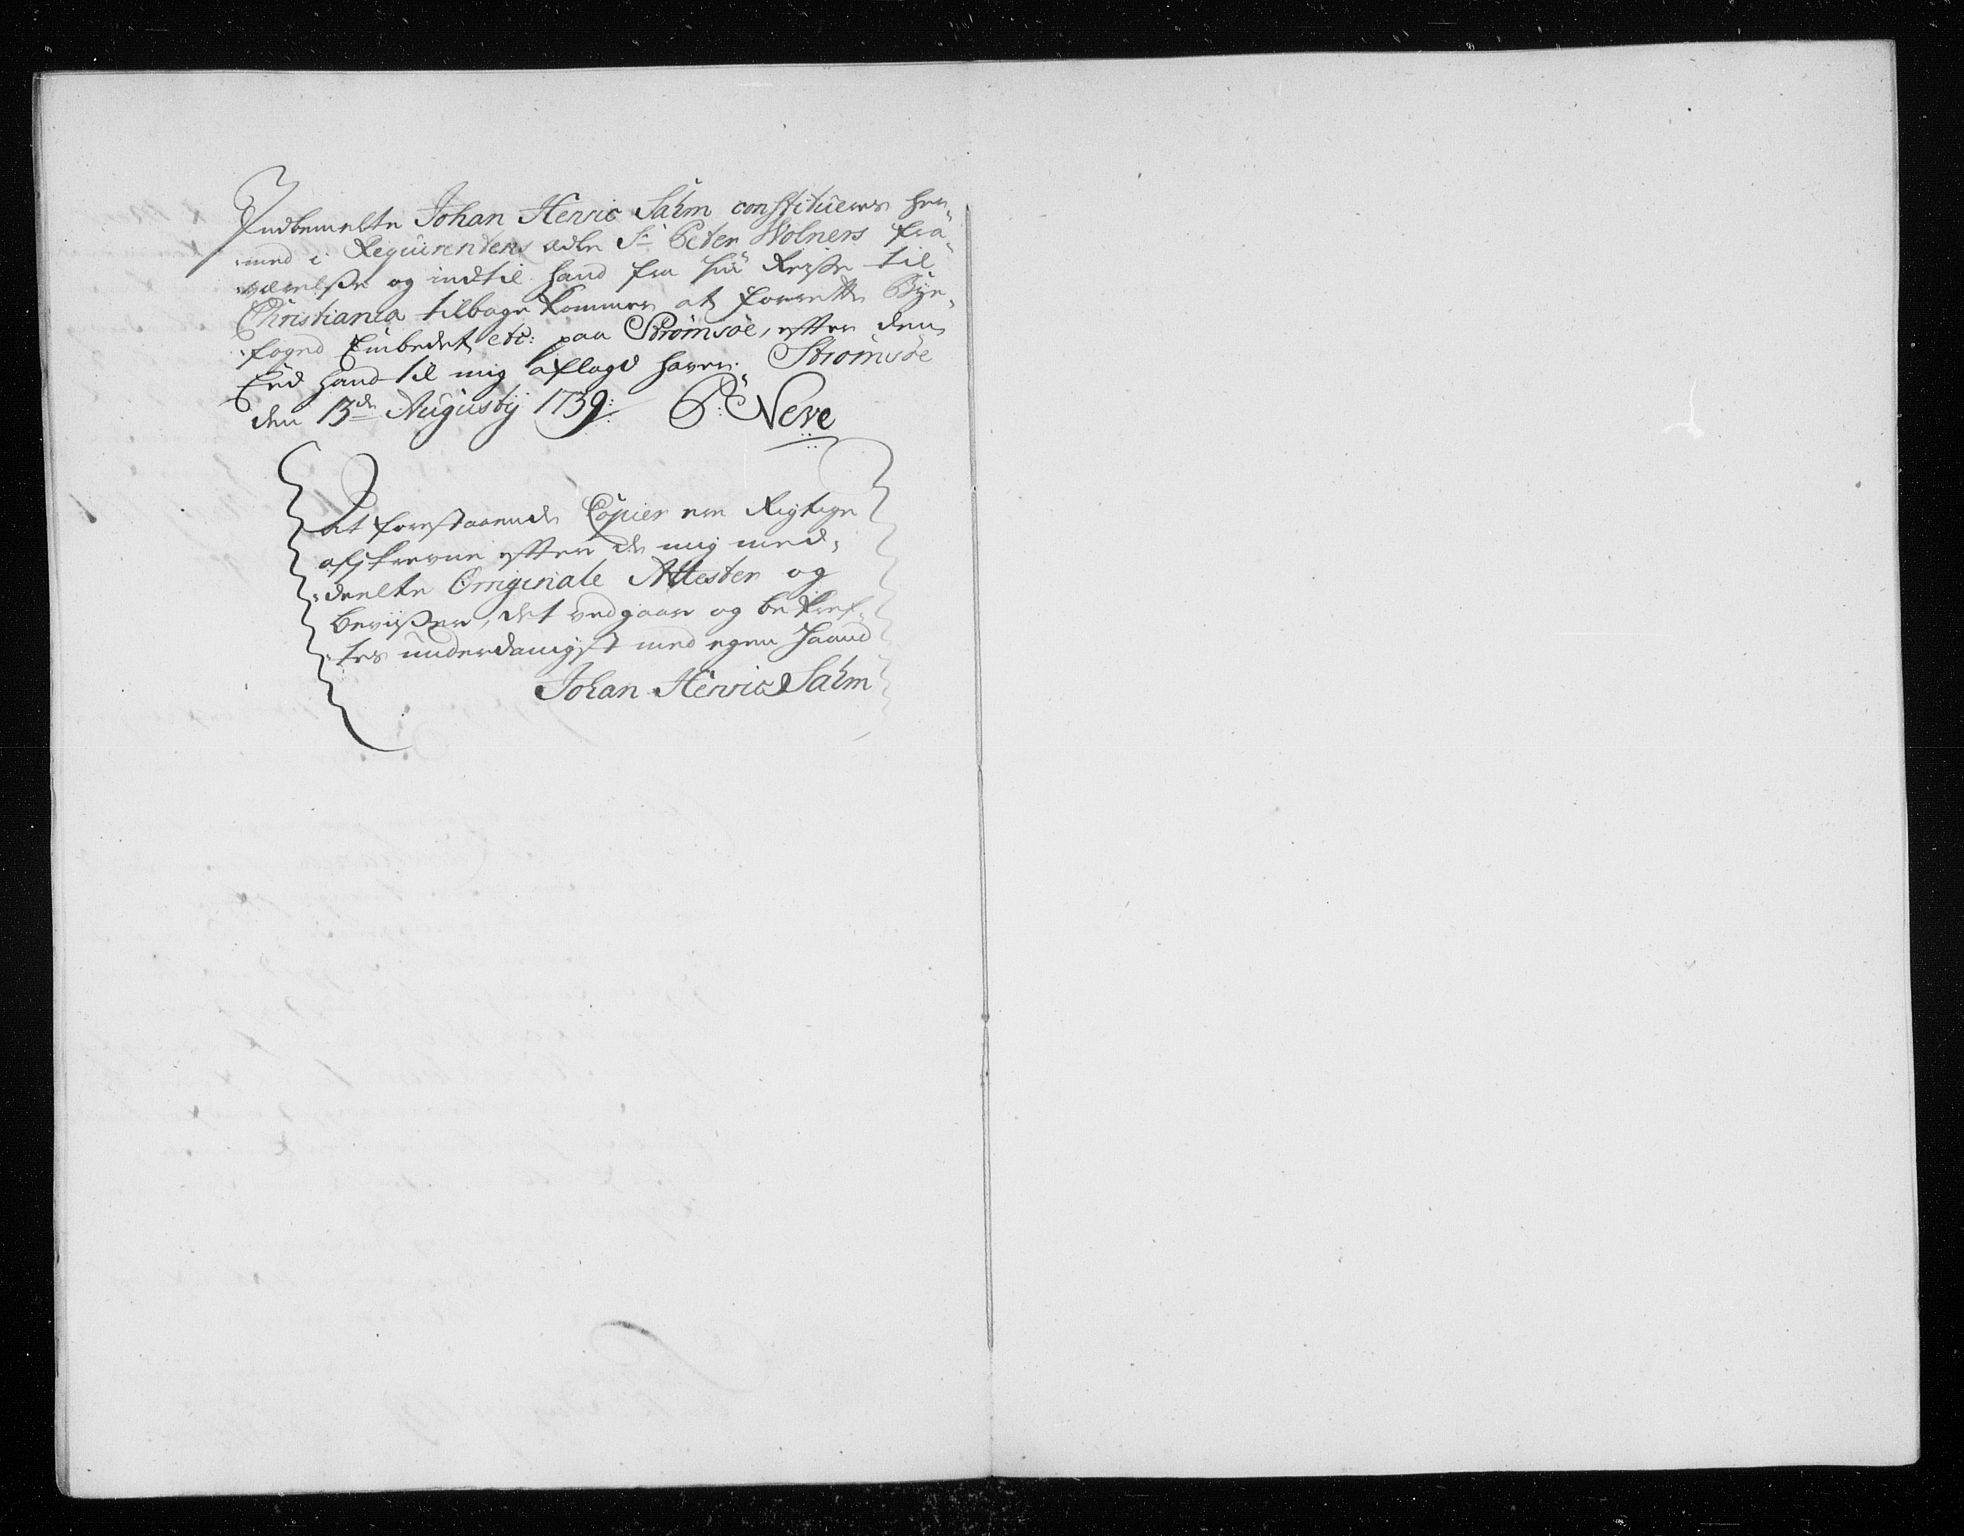 Indbemelte Johan Henric Salm constitueres her,
:med i Requirentens ædle Sr Peter Wolners fra,
:værelße og indtil hand fra sin Reiße til
Christiania tilbage kommer at forrette Bye,
:foged Embedet etc: paa Strømsøe, efter den
Eed hand til mig aflagt haver. Strømsøe
den 13de Augusty 1739: P: Neve
At forestaaende Copier ere Rigtige
afskrevne efter de mig med,
:deelte Orriginale Attester og
beviißer, det vedgaar og bekref,
:tes underdanigst med egen Haand
Johan Henric Salm